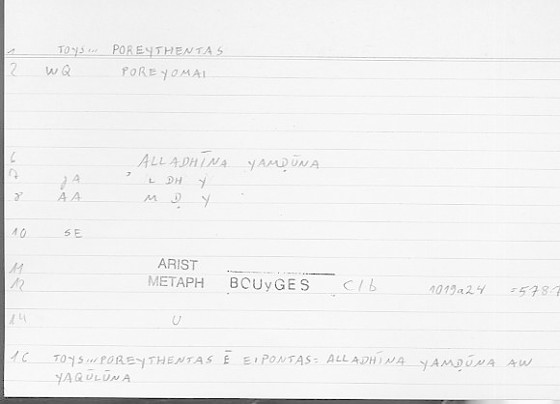 1 TOYS... POREYTHENTAS
2 WQ POREYOMAI
6 ALLADHĪNA YAMḌŪNA
7 JA ʾ L DH Y
8 AA M Ḍ Y
10 SE
11 ARIST
12 METAPH BOUyGES C1b 1019a24 =578.7
14 U
16 TOYS...POREYTHENTAS Ē EIPONTAS= ALLADHĪNA YAMḌŪNA AW
YAQŪLŪNA